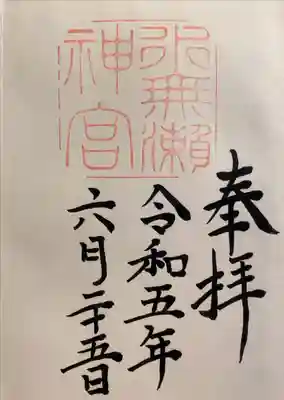 奉拝
水無瀬神宮
令和五年
六月二十五日